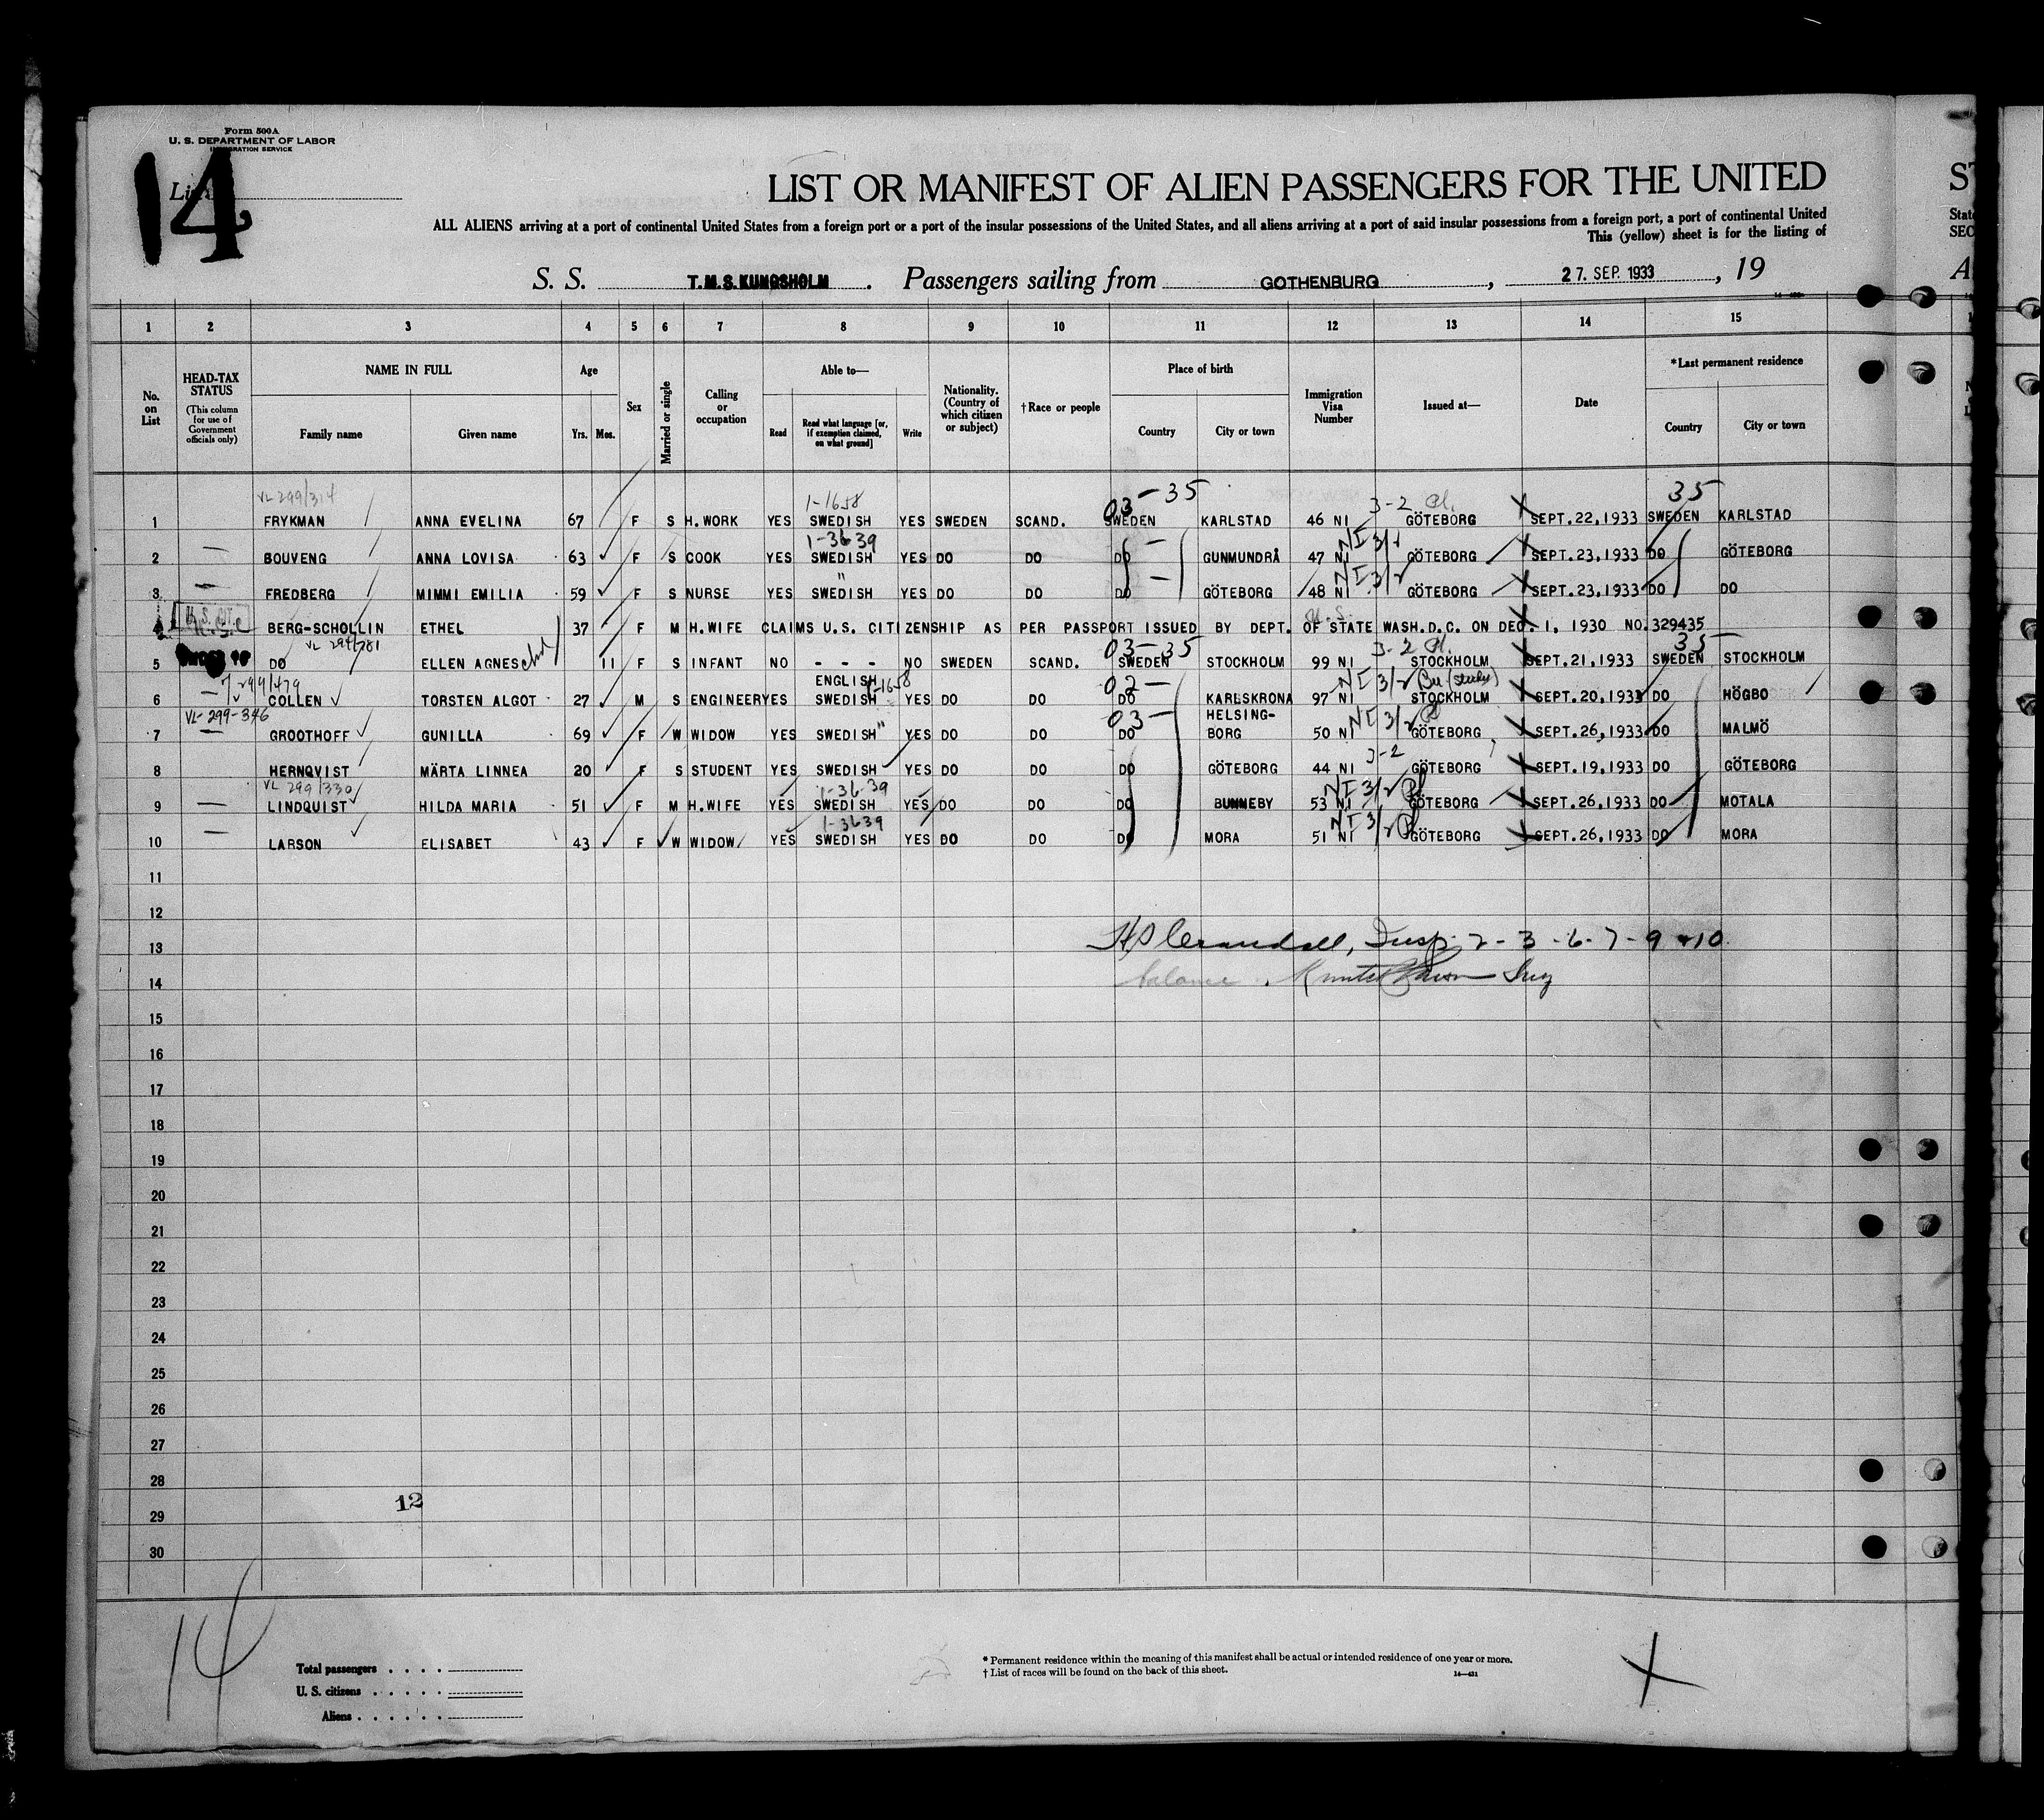 Form 500A
U. S. DEPARTMENT OF LABOR
IMMIGRATION SERVICE
14
List
LIST OR MANIFEST OF ALIEN PASSENGERS FOR THE UNITED
ALL ALIENS arriving at a port of continental United States from a foreign port or a port of the insular possessions of the United States, and all aliens arriving at a port of said insular possessions from a foreign port, a port of continental United
This (yellow) sheet is for the listing of
S. S. T.M.S. KUNGSHOLM. Passengers sailing from GOTHENBURG, 27. SEP. 1933, 19
1 2 3 4 5 6 7 8 9 10 11 12 13 14 15
No. on List
HEAD-TAX STATUS
(This column for use of Government officials only)
NAME IN FULL
Family name Given name
Age
Yrs. Mos.
Sex
Married or single
Calling or occupation
Able to—
Read Read what language [or, if exemption claimed, on what ground] Write
Nationality. (Country of which citizen or subject)
†Race or people
Place of birth
Country City or town
Immigration Visa Number
Issued at—
Date
*Last permanent residence
Country City or town
VL 299/314 1-1658 03-35 3-2 35
1 FRYKMAN ANNA EVELINA 67 F S H.WORK YES SWEDISH YES SWEDEN SCAND. SWEDEN KARLSTAD 46 NI GÖTEBORG SEPT.22,1933 SWEDEN KARLSTAD
1-3639
2 BOUVENG ANNA LOVISA 63 F S COOK YES SWEDISH YES DO DO DO GUNMUNDRÅ 47 NI GÖTEBORG SEPT.23,1933 DO GÖTEBORG
NI 3/2
3 FREDBERG MIMMI EMILIA 59 F S NURSE YES SWEDISH YES DO DO DO GÖTEBORG 48 NI GÖTEBORG SEPT.23,1933 DO DO
U.S. CIT.
4 BERG-SCHOLLIN ETHEL 37 F M H.WIFE CLAIMS U.S. CITIZENSHIP AS PER PASSPORT ISSUED BY DEPT. OF STATE WASH.D.C. ON DEC. 1, 1930 NO.329435
03-35 3-2 35
5 DO ELLEN AGNES 11 F S INFANT NO - - - NO SWEDEN SCAND. SWEDEN STOCKHOLM 99 NI STOCKHOLM SEPT.21,1933 SWEDEN STOCKHOLM
299/479 ENGLISH 1-1658 02- NI 3/2
6 COLLEN TORSTEN ALGOT 27 M S ENGINEER YES SWEDISH YES DO DO DO KARLSKRONA 97 NI STOCKHOLM SEPT.20,1933 DO HÖGBO
VL-299-346 03- HELSING- NI 3/2
7 GROOTHOFF GUNILLA 69 F W WIDOW YES SWEDISH YES DO DO DO BORG 50 NI GÖTEBORG SEPT.26,1933 DO MALMÖ
3-2
8 HERNQVIST MÄRTA LINNEA 20 F S STUDENT YES SWEDISH YES DO DO DO GÖTEBORG 44 NI GÖTEBORG SEPT.19,1933 DO GÖTEBORG
VL 299/330 1-36-39 NI 3/2
9 LINDQUIST HILDA MARIA 51 F M H.WIFE YES SWEDISH YES DO DO DO 53 NI GÖTEBORG SEPT.26,1933 DO MOTALA
1-3639 NI 3/2
10 LARSON ELISABET 43 F W WIDOW YES SWEDISH YES DO DO DO MORA 51 NI GÖTEBORG SEPT.26,1933 DO MORA
11
12
13 Crandall, Insp. 2-3-6-7-9 & 10
14 balance
15
16
17
18
19
20
21
22
23
24
25
26
27
28
12
29
30
14
Total passengers
U. S. citizens
Aliens
* Permanent residence within the meaning of this manifest shall be actual or intended residence of one year or more.
† List of races will be found on the back of this sheet.